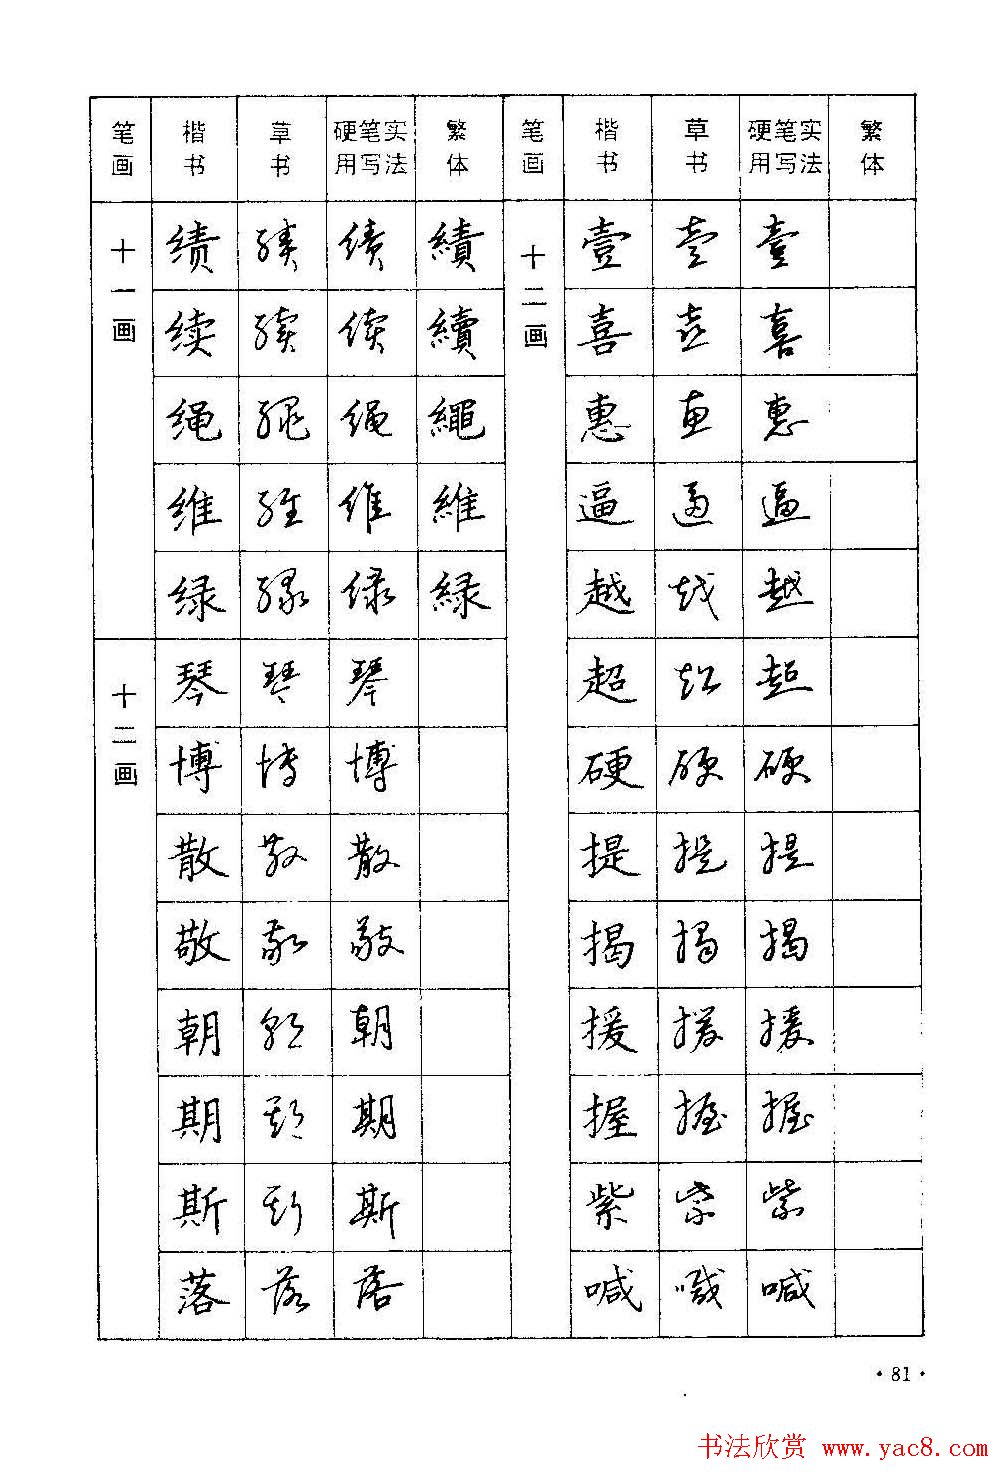 笔画 楷书 草书 硬笔实用写法 繁体 笔画 楷书 草书 硬笔实用写法 繁体
十一画 绩 绩 绩 績 十二画 壹 壹 壹
续 续 续 續 喜 喜 喜
绳 绳 绳 繩 惠 惠 惠
维 维 维 維 逼 逼 逼
绿 绿 绿 緑 越 越 越
十二画 琴 琴 琴 超 超 超
博 博 博 硬 硬 硬
散 散 散 提 提 提
敬 敬 敬 揭 揭 揭
朝 朝 朝 援 援 援
期 期 期 握 握 握
斯 斯 斯 紫 紫 紫
落 落 落 喊 喊 喊
·81·
书法欣赏 www.yac8.com